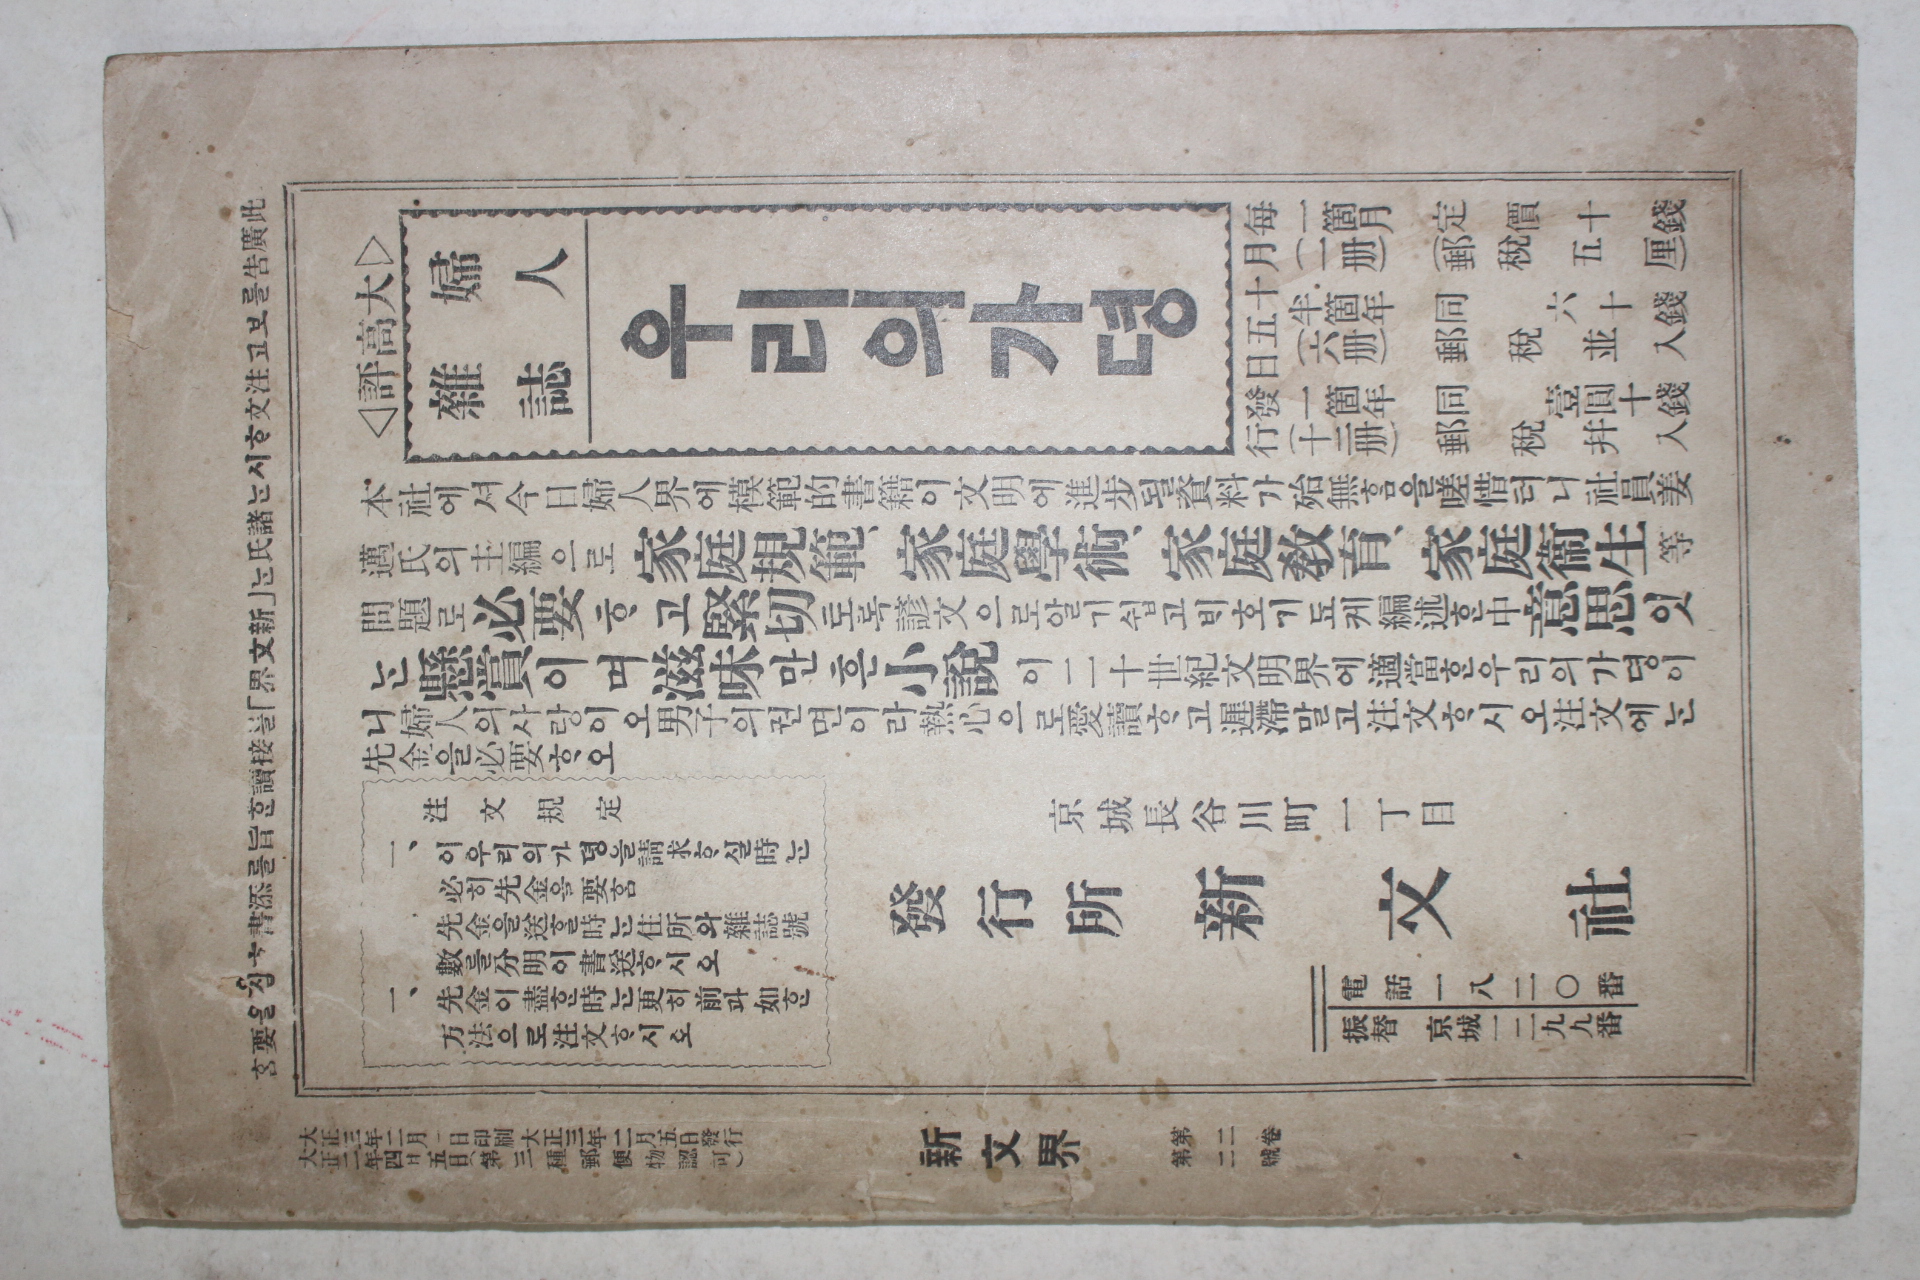 此廣告를보고注文하시는諸氏는「新文界」를接讀한旨를添書하심을要홈
大高評
婦人
雜誌
우리의가뎡
每月十五日發行
一箇月(一冊) 定價十五錢(郵稅五厘)
半箇年(六冊) 同郵稅並
一箇年(十二冊) 同郵稅幷
本社에셔今日婦人界에模範的書籍이文明에進步될資料가殆無홈을嗟惜터니社員姜
邁氏의主編으로家庭規範、家庭學術、家庭敎育、家庭衛生等
問題로必要ᄒᆞ고緊切토록諺文으로알기쉽고비호기됴케編述한中意思잇
는懸賞이며滋味만흔小說이二十世紀文明界에適當한우리의가뎡이
니婦人의사랑이오男子의권면이라熱心으로愛讀ᄒᆞ고遲滯말고注文ᄒᆞ시오注文에는
先金을必要ᄒᆞ오
注文規定
一、이우리의가뎡을請求ᄒᆞ실時는
必히先金을要홈
先金을送ᄒᆞᆯ時는住所와雜誌號
數를分明이書送ᄒᆞ시오
一、先金이盡한時는更히前과如한
方法으로注文ᄒᆞ시오
京城長谷川町一丁目
發行所 新文社
電話一八二〇番
振替京城一二九九番
大正三年二月一日印刷大正三年二月五日發行
大正二年四月五日(第三種郵便物認可)
新文界
第二卷
第二號